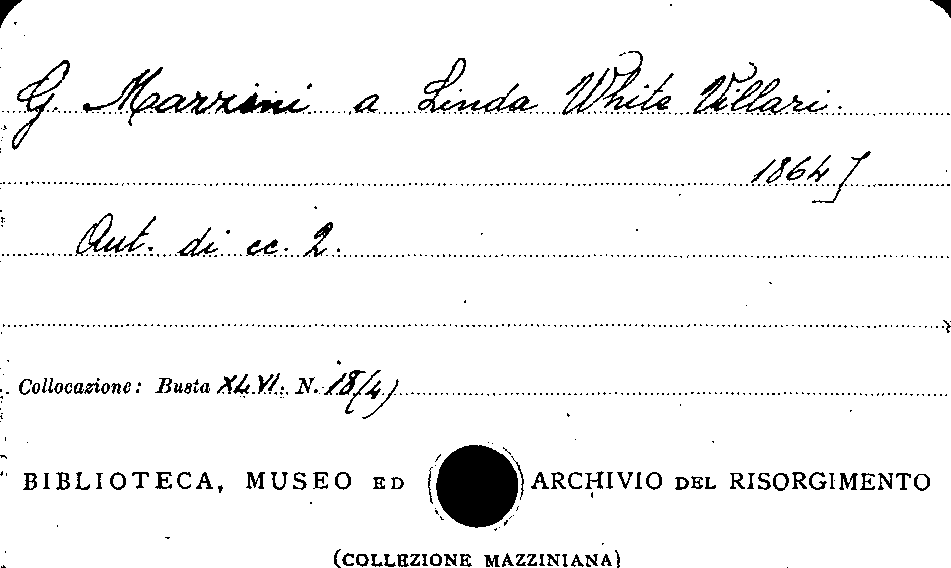 G. Mazzini a Linda White Villari.
1864]
Aut. di cc. 2.
Collocazione: Busta XLVI. N. 18(4)
BIBLIOTECA, MUSEO ED ARCHIVIO DEL RISORGIMENTO
(COLLEZIONE MAZZINIANA)